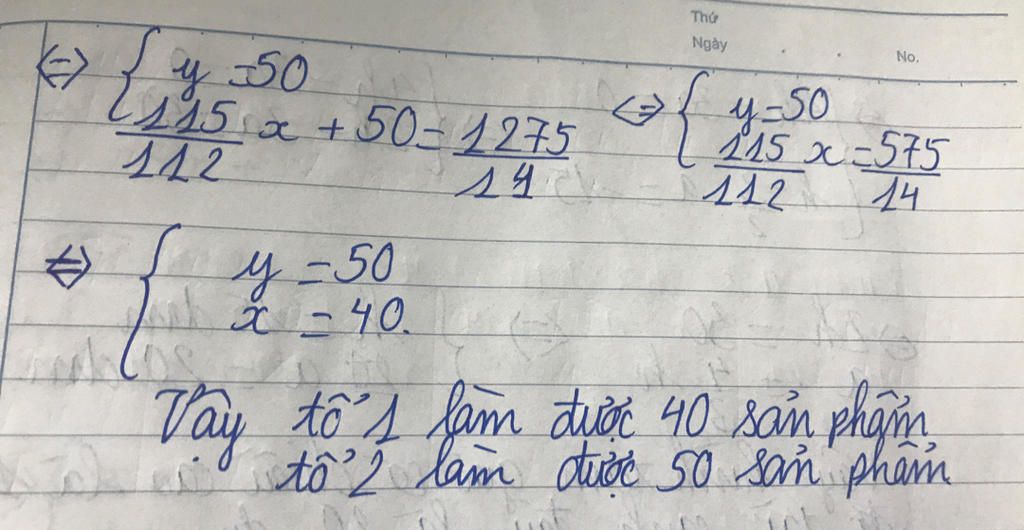 Thứ
Ngày No.
⇔ { y = 50
115/112 x + 50 = 1275/14
⇔ { y = 50
115/112 x = 575/14
⇔ { y = 50
x = 40.
Vậy tổ 1 làm được 40 sản phẩm
tổ 2 làm được 50 sản phẩm